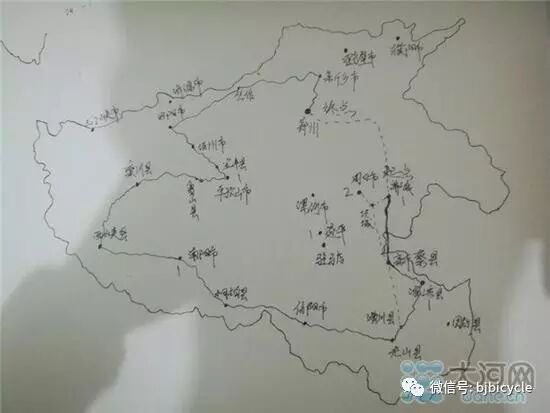 濮阳市
鹤壁市
新乡市
焦作
洛阳市
三门峡市
终点
郑州
汝州市
宝丰县
平顶山市
鲁山县
栾川县
西峡县
南阳市
桐柏县
信阳市
潢川县
光山县
淮滨县
固始县
新蔡县
项城
周口市
2
起点
郸城
1
漯河市
1
遂平
驻马店
1
大河网
微信号: bjbicycle